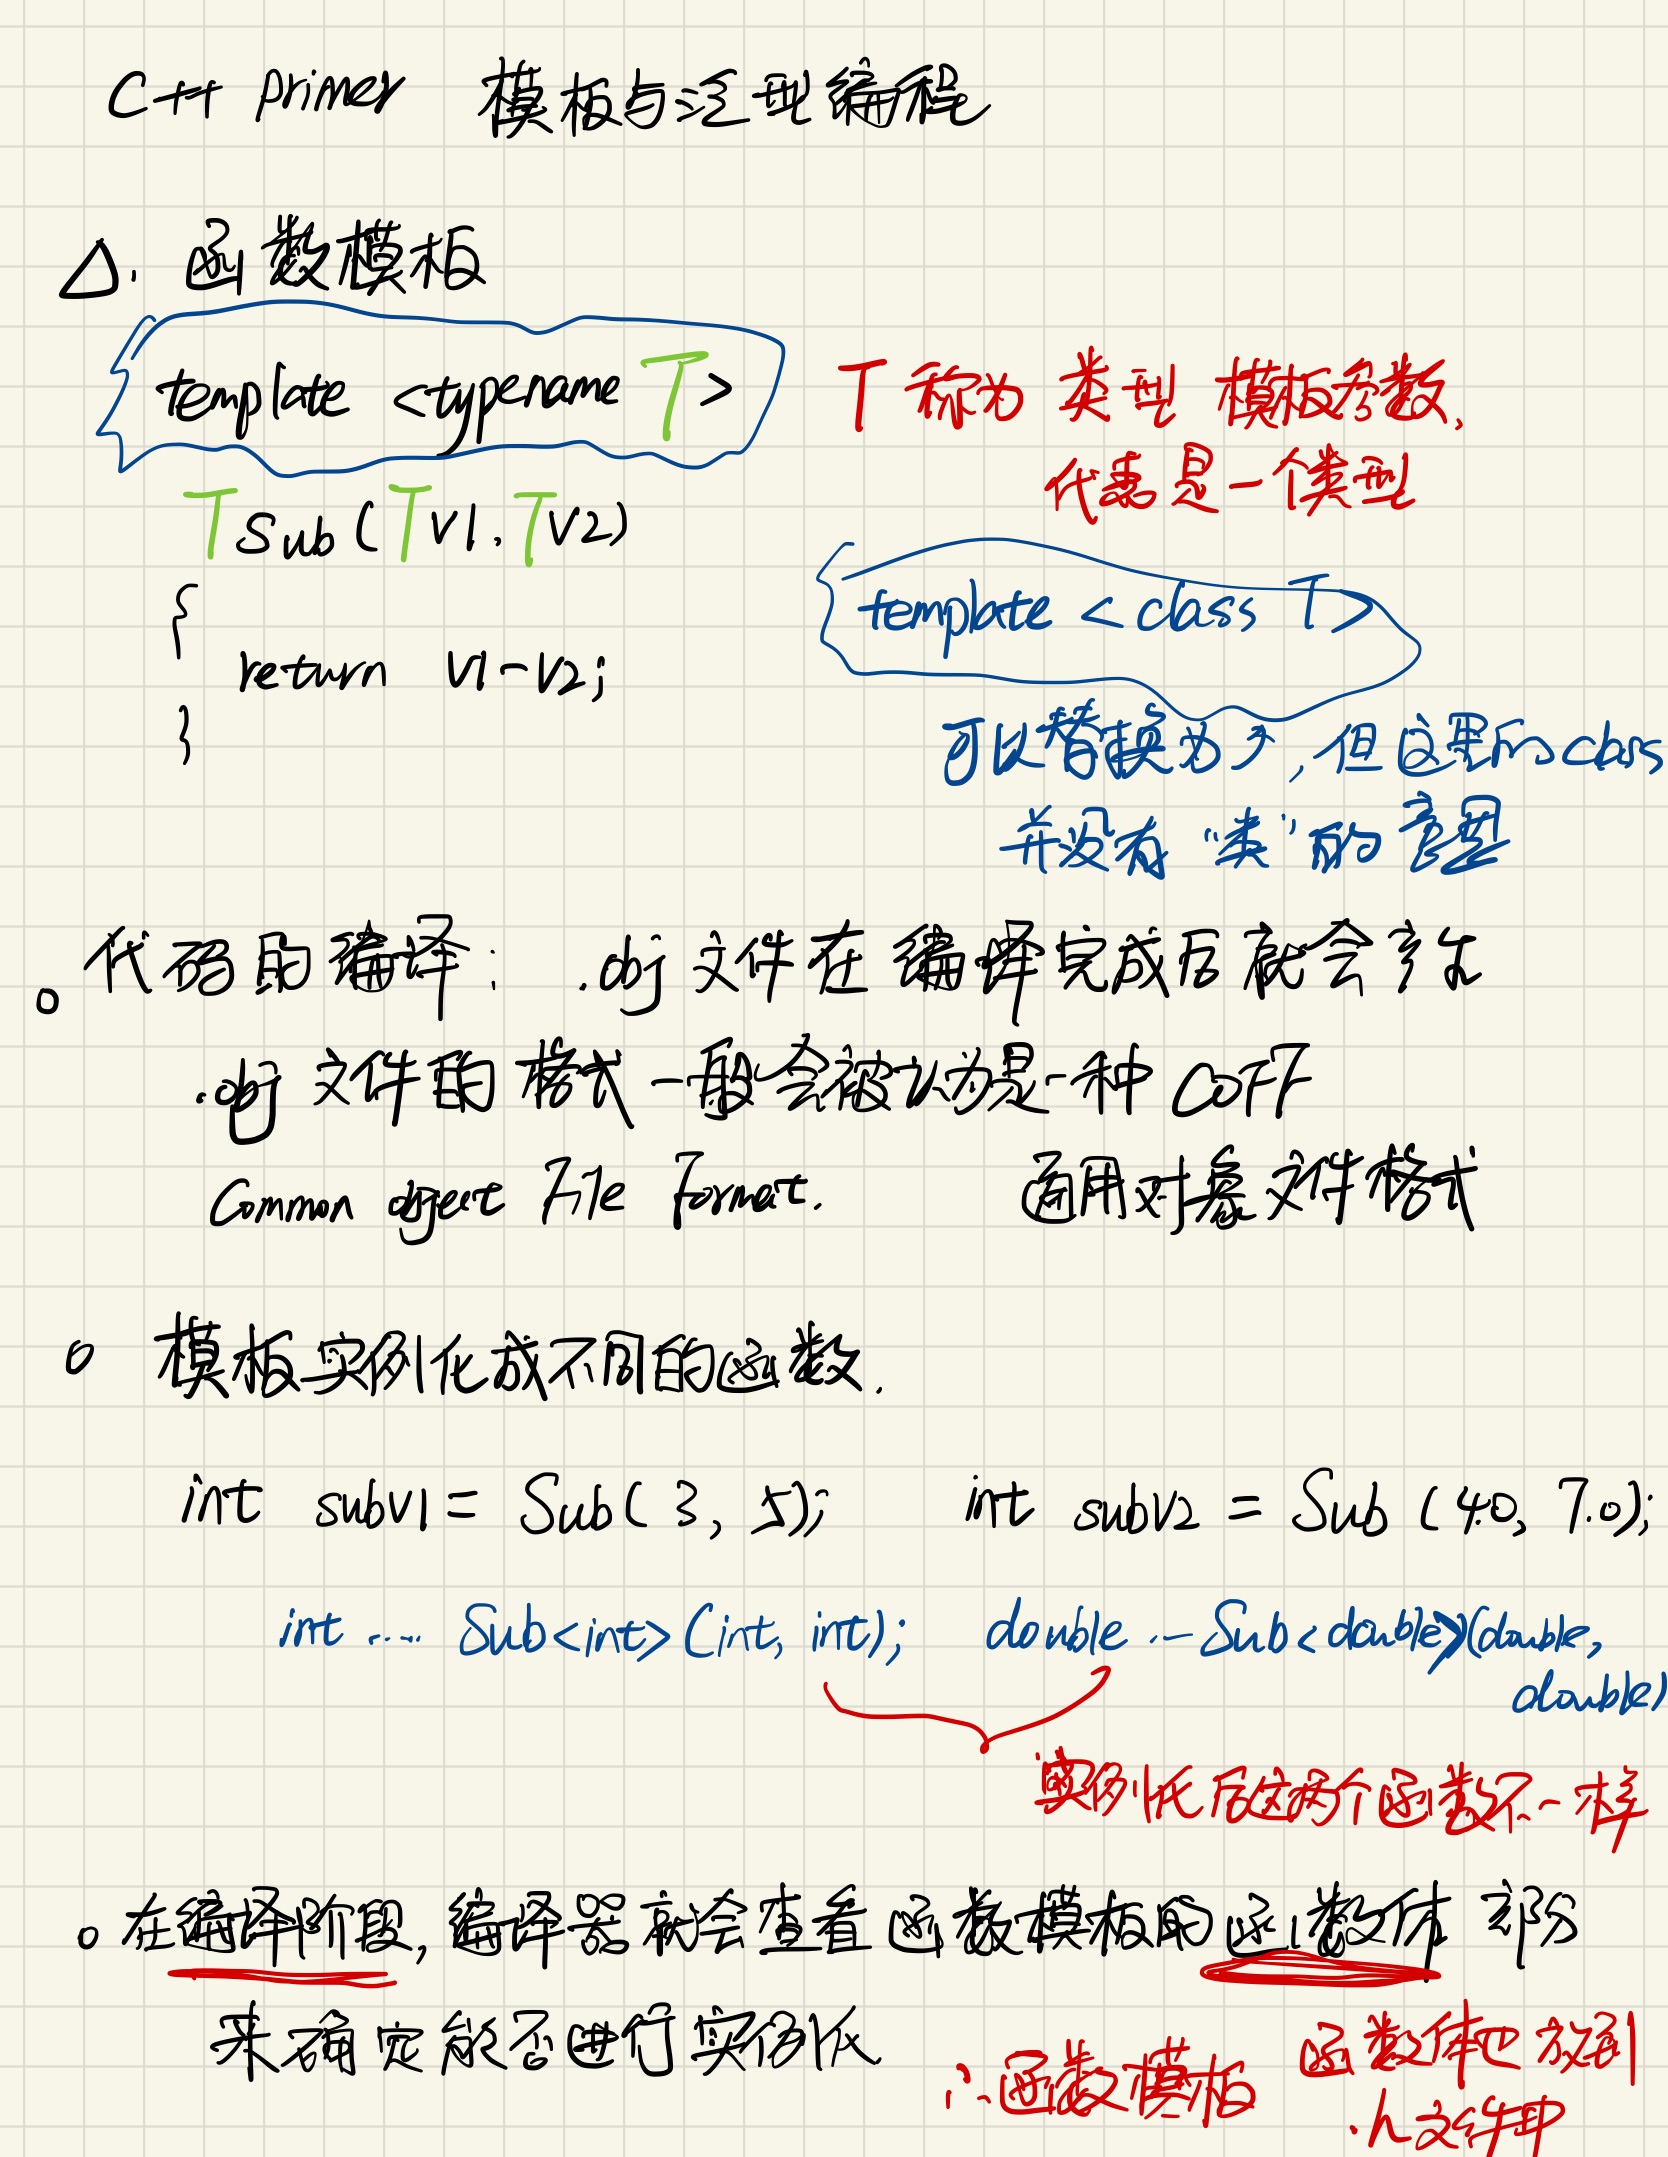 C++ primer 模板与泛型编程
△. 函数模板
template <typename T>
T称为 类型 模板参数,
代表是一个类型
T Sub(T V1, T V2)
{
return V1-V2;
}
template <class T>
可以替换为了, 但这里的class
并没有“类”的意思
。代码的编译: .obj文件在编译完成后就会产生
.obj 文件的格式一般会被认为是一种 COFF
Common object File Format. 通用对象文件格式
。模板实例化成不同的函数.
int subv1 = Sub(3, 5); int subv2 = Sub (4.0, 7.0);
int .... Sub<int>(int, int); double ... Sub<double>(double,
double)
实例化后这两个函数不一样
。在编译阶段, 编译器就会查看函数模板的函数体部分
来确定能否进行实例化
∴函数模板 函数体也放到
.h文件中